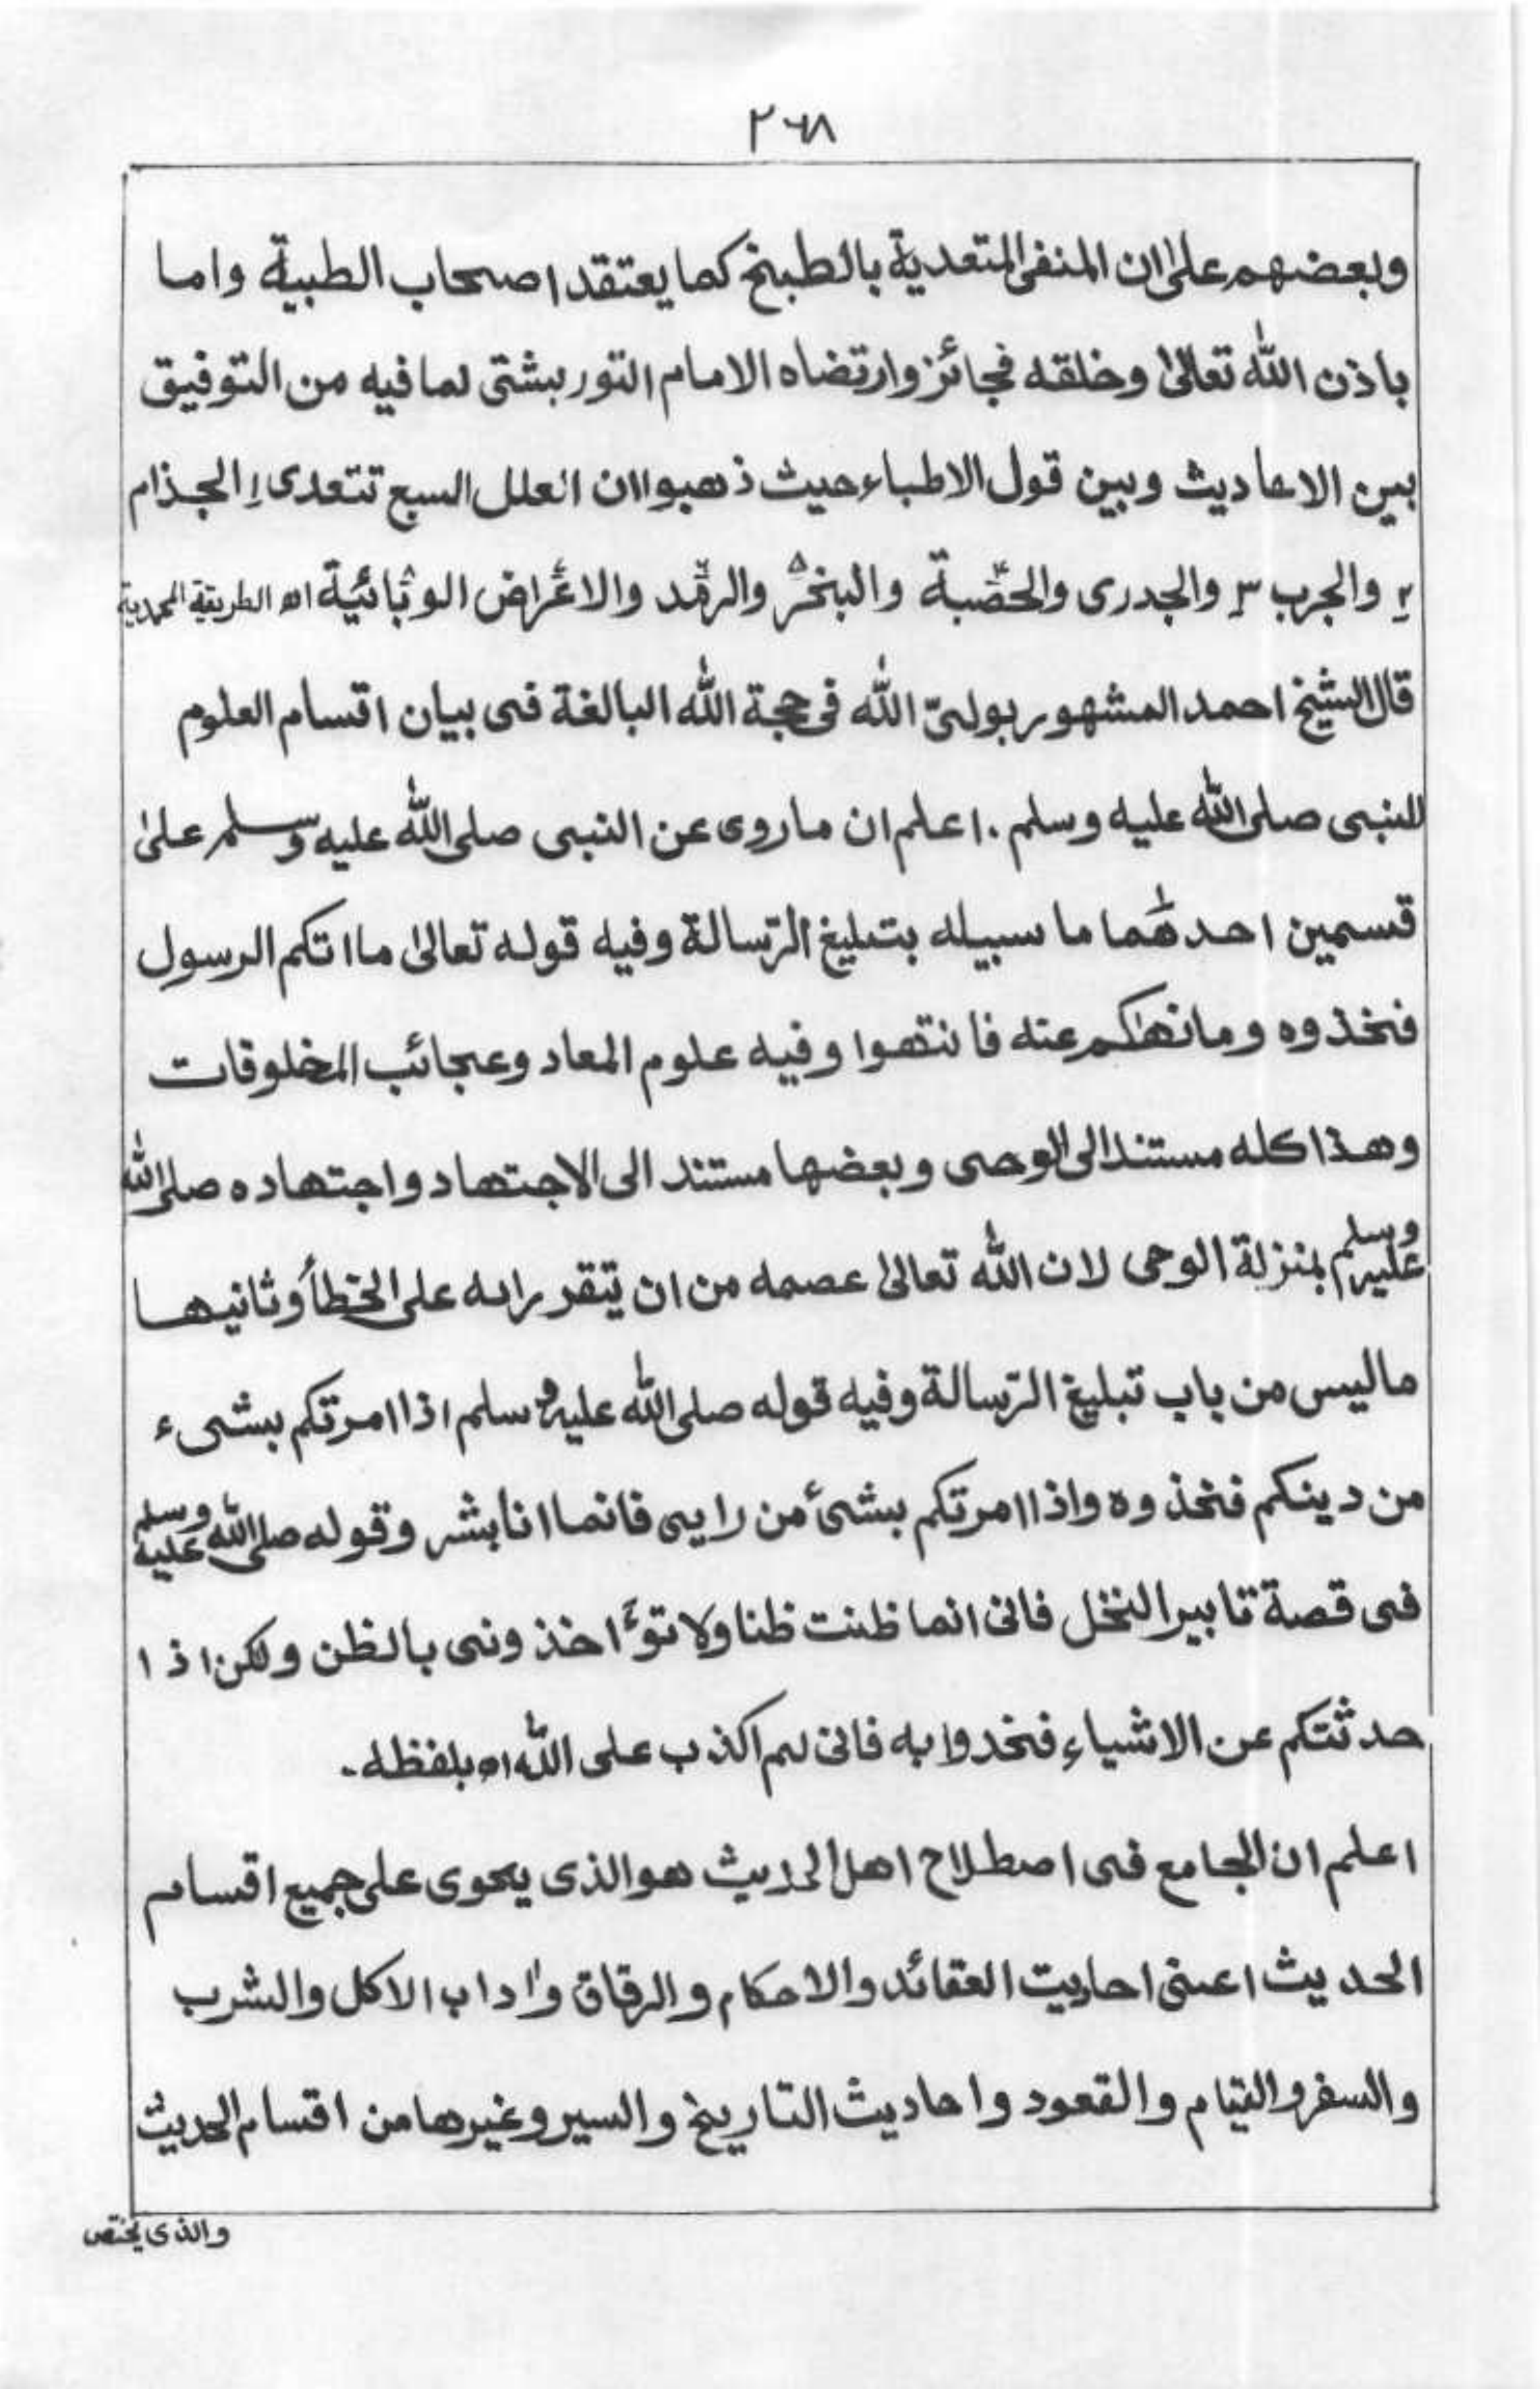 ٢٦٨
وبعضهم علیٰ ان المنفی المتعدیة بالطبخ کما یعتقد اصحاب الطبیة واما
باذن اللّٰه تعالیٰ وخلقه فجائز وارتضاه الامام التوربشتی لما فیه من التوفیق
بین الاحادیث وبین قول الاطباء حیث ذهبوا ان العلل السبع تتعدی ۱ الجذام
۲ والجرب ۳ والجدری والحصبة والبخر والرمد والاغراض الوبائیة اه الطریقة المحمدیة
قال الشیخ احمد المشهور بولیّ اللّٰه فی حجة اللّٰه البالغة فی بیان اقسام العلوم
للنبی صلی اللّٰه علیه وسلم . اعلم ان ما روی عن النبی صلی اللّٰه علیه وسلم علیٰ
قسمین احدهما ما سبیله بتبلیغ الرّسالة وفیه قوله تعالیٰ ما اتکم الرسول
فخذوه وما نهٰکم عنه فانتهوا وفیه علوم المعاد وعجائب المخلوقات
وهذا کله مستند الی الوحی وبعضها مستند الی الاجتهاد واجتهاده صلی اللّٰه
علیه وسلم بمنزلة الوحی لان اللّٰه تعالیٰ عصمه من ان یتقرر رایه علی الخطأ وثانیها
مالیس من باب تبلیغ الرّسالة وفیه قوله صلی اللّٰه علیه وسلم اذا امرتکم بشیء
من دینکم فخذوه واذا امرتکم بشئ من رایی فانما انا بشر وقوله صلی اللّٰه علیه وسلم
فی قصة تابیر النخل فانی انما ظنت ظنا ولا تؤاخذونی بالظن ولکن اذا
حدثتکم عن الاشیاء فخدوا به فانی لم اکذب علی اللّٰه اه بلفظه ۔
اعلم ان الجامع فی اصطلاح اهل الحدیث هو الذی یحوی علی جمیع اقسام
الحدیث اعنی احادیت العقائد والاحکام والرقاق واٰداب الاکل والشرب
والسفر والقیام والقعود واحادیث التاریخ والسیر وغیرها من اقسام الحدیث
والذی یختص